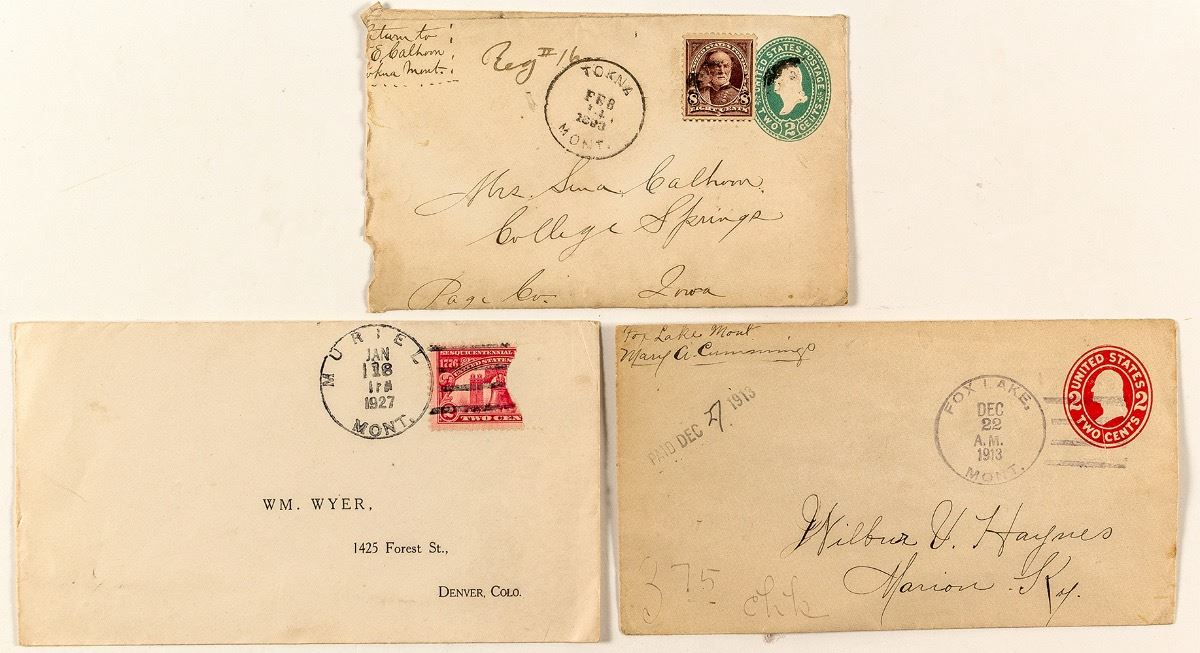 eturn to
E Calhoun
okna Mont.
Reg # 16
TOKNA
FEB
MONT.
UNITED STATES POSTAGE
TWO 2 CENTS
Mrs. Calhoun.
College Springs
Page Co. Iowa
MURIEL
JAN
18
1 PM
1927
MONT.
SESQUICENTENNIAL
1776
TWO CEN
WM. WYER,
1425 Forest St.,
DENVER, COLO.
Fox Lake Mont
Mary A. Cummings
PAID DEC 27 1913
FOX LAKE,
DEC
22
A.M.
1913
MONT.
UNITED STATES
2 2
TWO CENTS
Wilbur V. Haynes
Marion Ky.
375